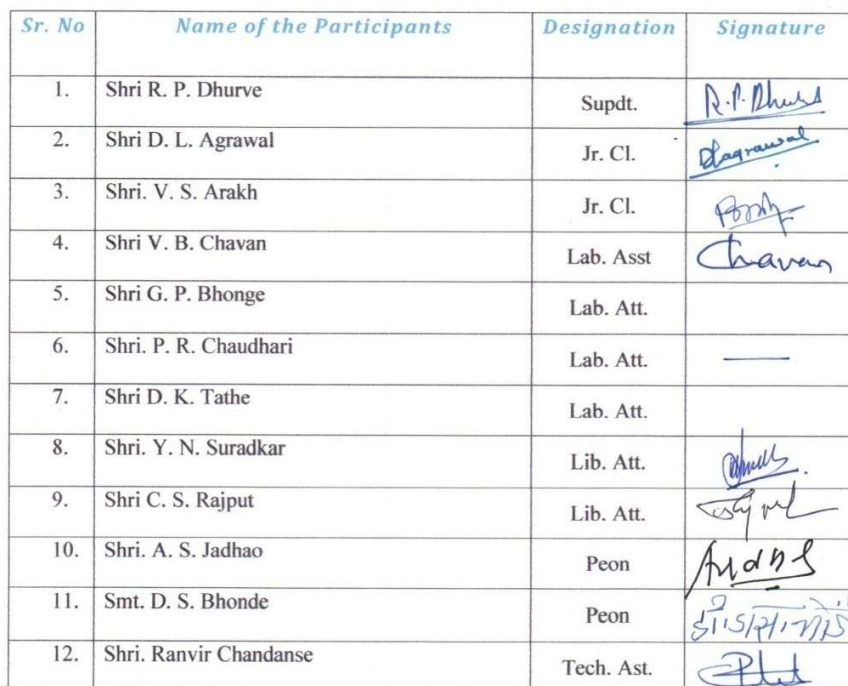 Sr. No Name of the Participants Designation Signature
1. Shri R. P. Dhurve Supdt. R.P. Dhurve
2. Shri D. L. Agrawal Jr. Cl. Dlagrawal
3. Shri. V. S. Arakh Jr. Cl.
4. Shri V. B. Chavan Lab. Asst Chavan
5. Shri G. P. Bhonge Lab. Att.
6. Shri. P. R. Chaudhari Lab. Att. —
7. Shri D. K. Tathe Lab. Att.
8. Shri. Y. N. Suradkar Lib. Att.
9. Shri C. S. Rajput Lib. Att.
10. Shri. A. S. Jadhao Peon
11. Smt. D. S. Bhonde Peon
12. Shri. Ranvir Chandanse Tech. Ast.